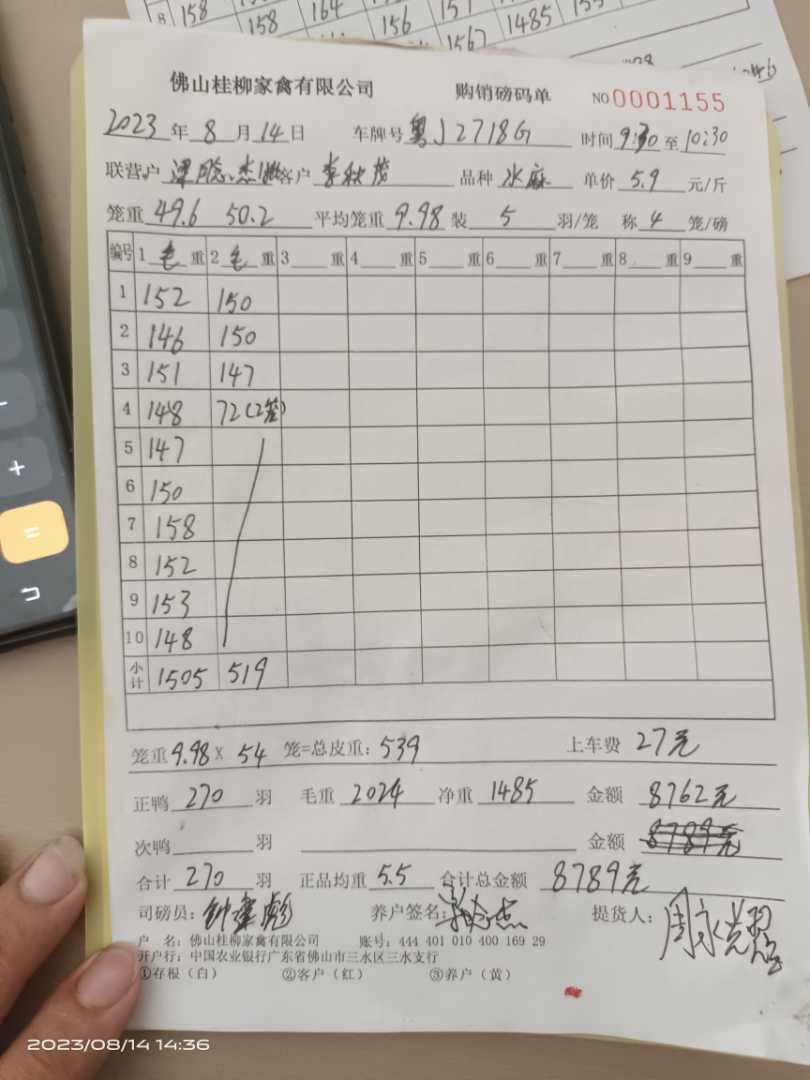 8 158 158 164 156 157 1485 155
1567
佛山桂柳家禽有限公司 购销磅码单 NO 0001155
2023年8月14日 车牌号 粤J2718G 时间 9:30 至 10:30
联营户 客户 李秋茂 品种 水麻 单价 5.9 元/斤
笼重 49.6 50.2 平均笼重 9.98 装 5 羽/笼 称 4 笼/磅
编号 1 毛 重 2 毛 重 3 重 4 重 5 重 6 重 7 重 8 重 9 重
1 152 150
2 146 150
3 151 147
4 148 72(2笼)
5 147
6 150
7 158
8 152
9 153
10 148
小计 1505 519
笼重 9.98 X 54 笼=总皮重: 539 上车费 27元
正鸭 270 羽 毛重 2024 净重 1485 金额 8762元
次鸭 羽 金额 8789元
合计 270 羽 正品均重 5.5 合计总金额 8789元
司磅员: 养户签名: 提货人:
户 名: 佛山桂柳家禽有限公司 账号: 444 401 010 400 169 29
开户行: 中国农业银行广东省佛山市三水区三水支行
①存根(白) ②客户(红) ③养户(黄)
2023/08/14 14:36